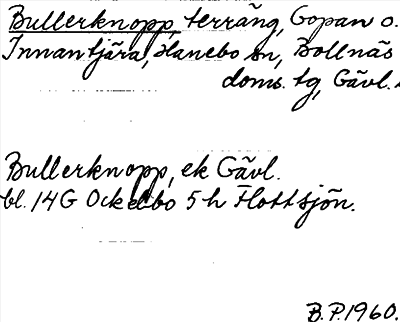 Bullerknopp, terräng, Gopan o.
Innantjära, Hanebo sn, Bollnäs
doms. tg, Gävl.
Bullerknopp, ek Gävl.
bl. 14G Ockelbo 5h Flottsjön.
B.P. 1960.